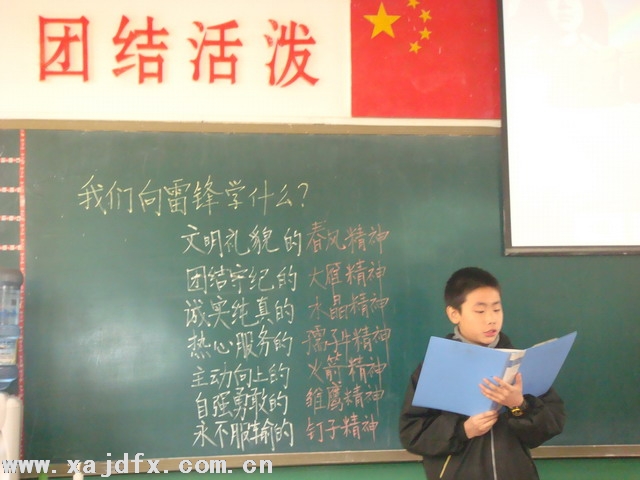 团结活泼
我们向雷锋学什么?
文明礼貌的春风精神
团结守纪的大雁精神
诚实纯真的水晶精神
热心服务的孺子牛精神
主动向上的火箭精神
自强勇敢的雏鹰精神
永不服输的钉子精神
www.xajdfx.com.cn